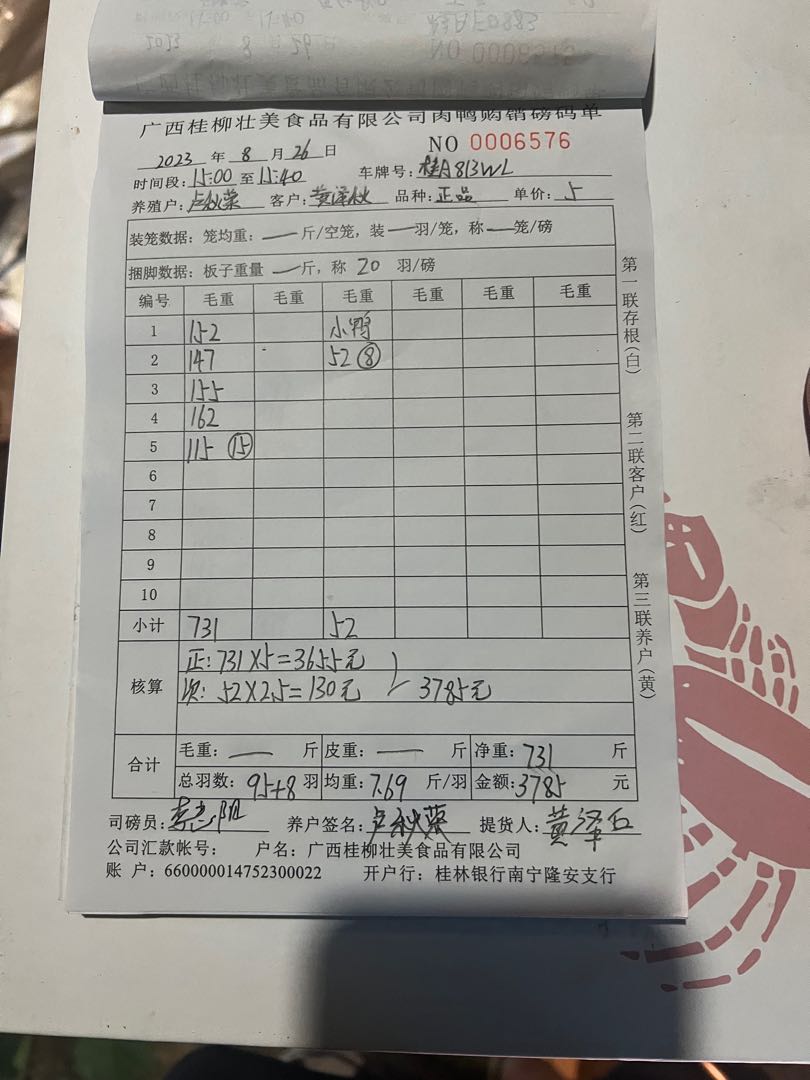 2023 8 29
NO 0006575
广西桂柳壮美食品有限公司肉鸭购销磅码单
NO 0006576
2023 年 8 月 26 日
时间段: 15:00 至 15:40 车牌号: 桂A813WL
养殖户: 卢秋荣 客户: 黄泽秋 品种: 正品 单价: 5
装笼数据: 笼均重: — 斤/空笼, 装 — 羽/笼, 称 — 笼/磅
捆脚数据: 板子重量 — 斤, 称 20 羽/磅
编号 毛重 毛重 毛重 毛重 毛重 毛重
1 152 小鸭
2 147 52 ⑧
3 155
4 162
5 115 ⑮
6
7
8
9
10
小计 731 52
核算
正: 731×5=3655元
次: 52×2.5=130元 3785元
合计
毛重: — 斤 皮重: — 斤 净重: 731 斤
总羽数: 95+8 羽 均重: 7.69 斤/羽 金额: 3785 元
司磅员: 养户签名: 卢秋荣 提货人: 黄泽
公司汇款帐号: 户名: 广西桂柳壮美食品有限公司
账 户: 660000014752300022 开户行: 桂林银行南宁隆安支行
第一联存根(白)
第二联客户(红)
第三联养户(黄)